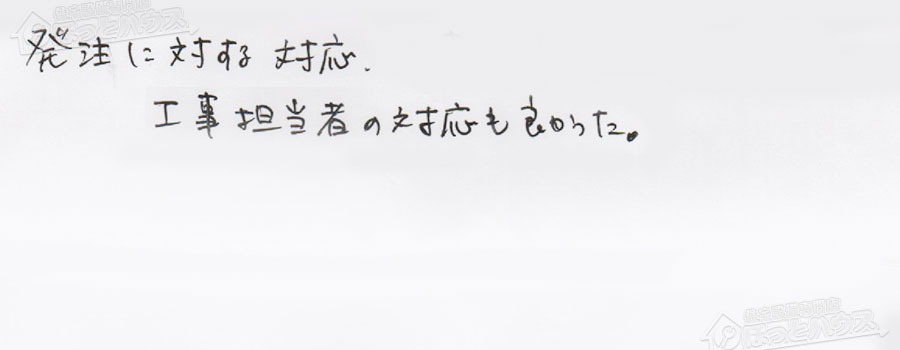 発注に対する対応.
工事担当者の対応も良かった。
ほっとハウス
ほっとハウス